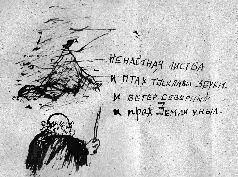 ненастная листва
и птах тоскливы звуки
и ветер северный
и прах Земли уныл.